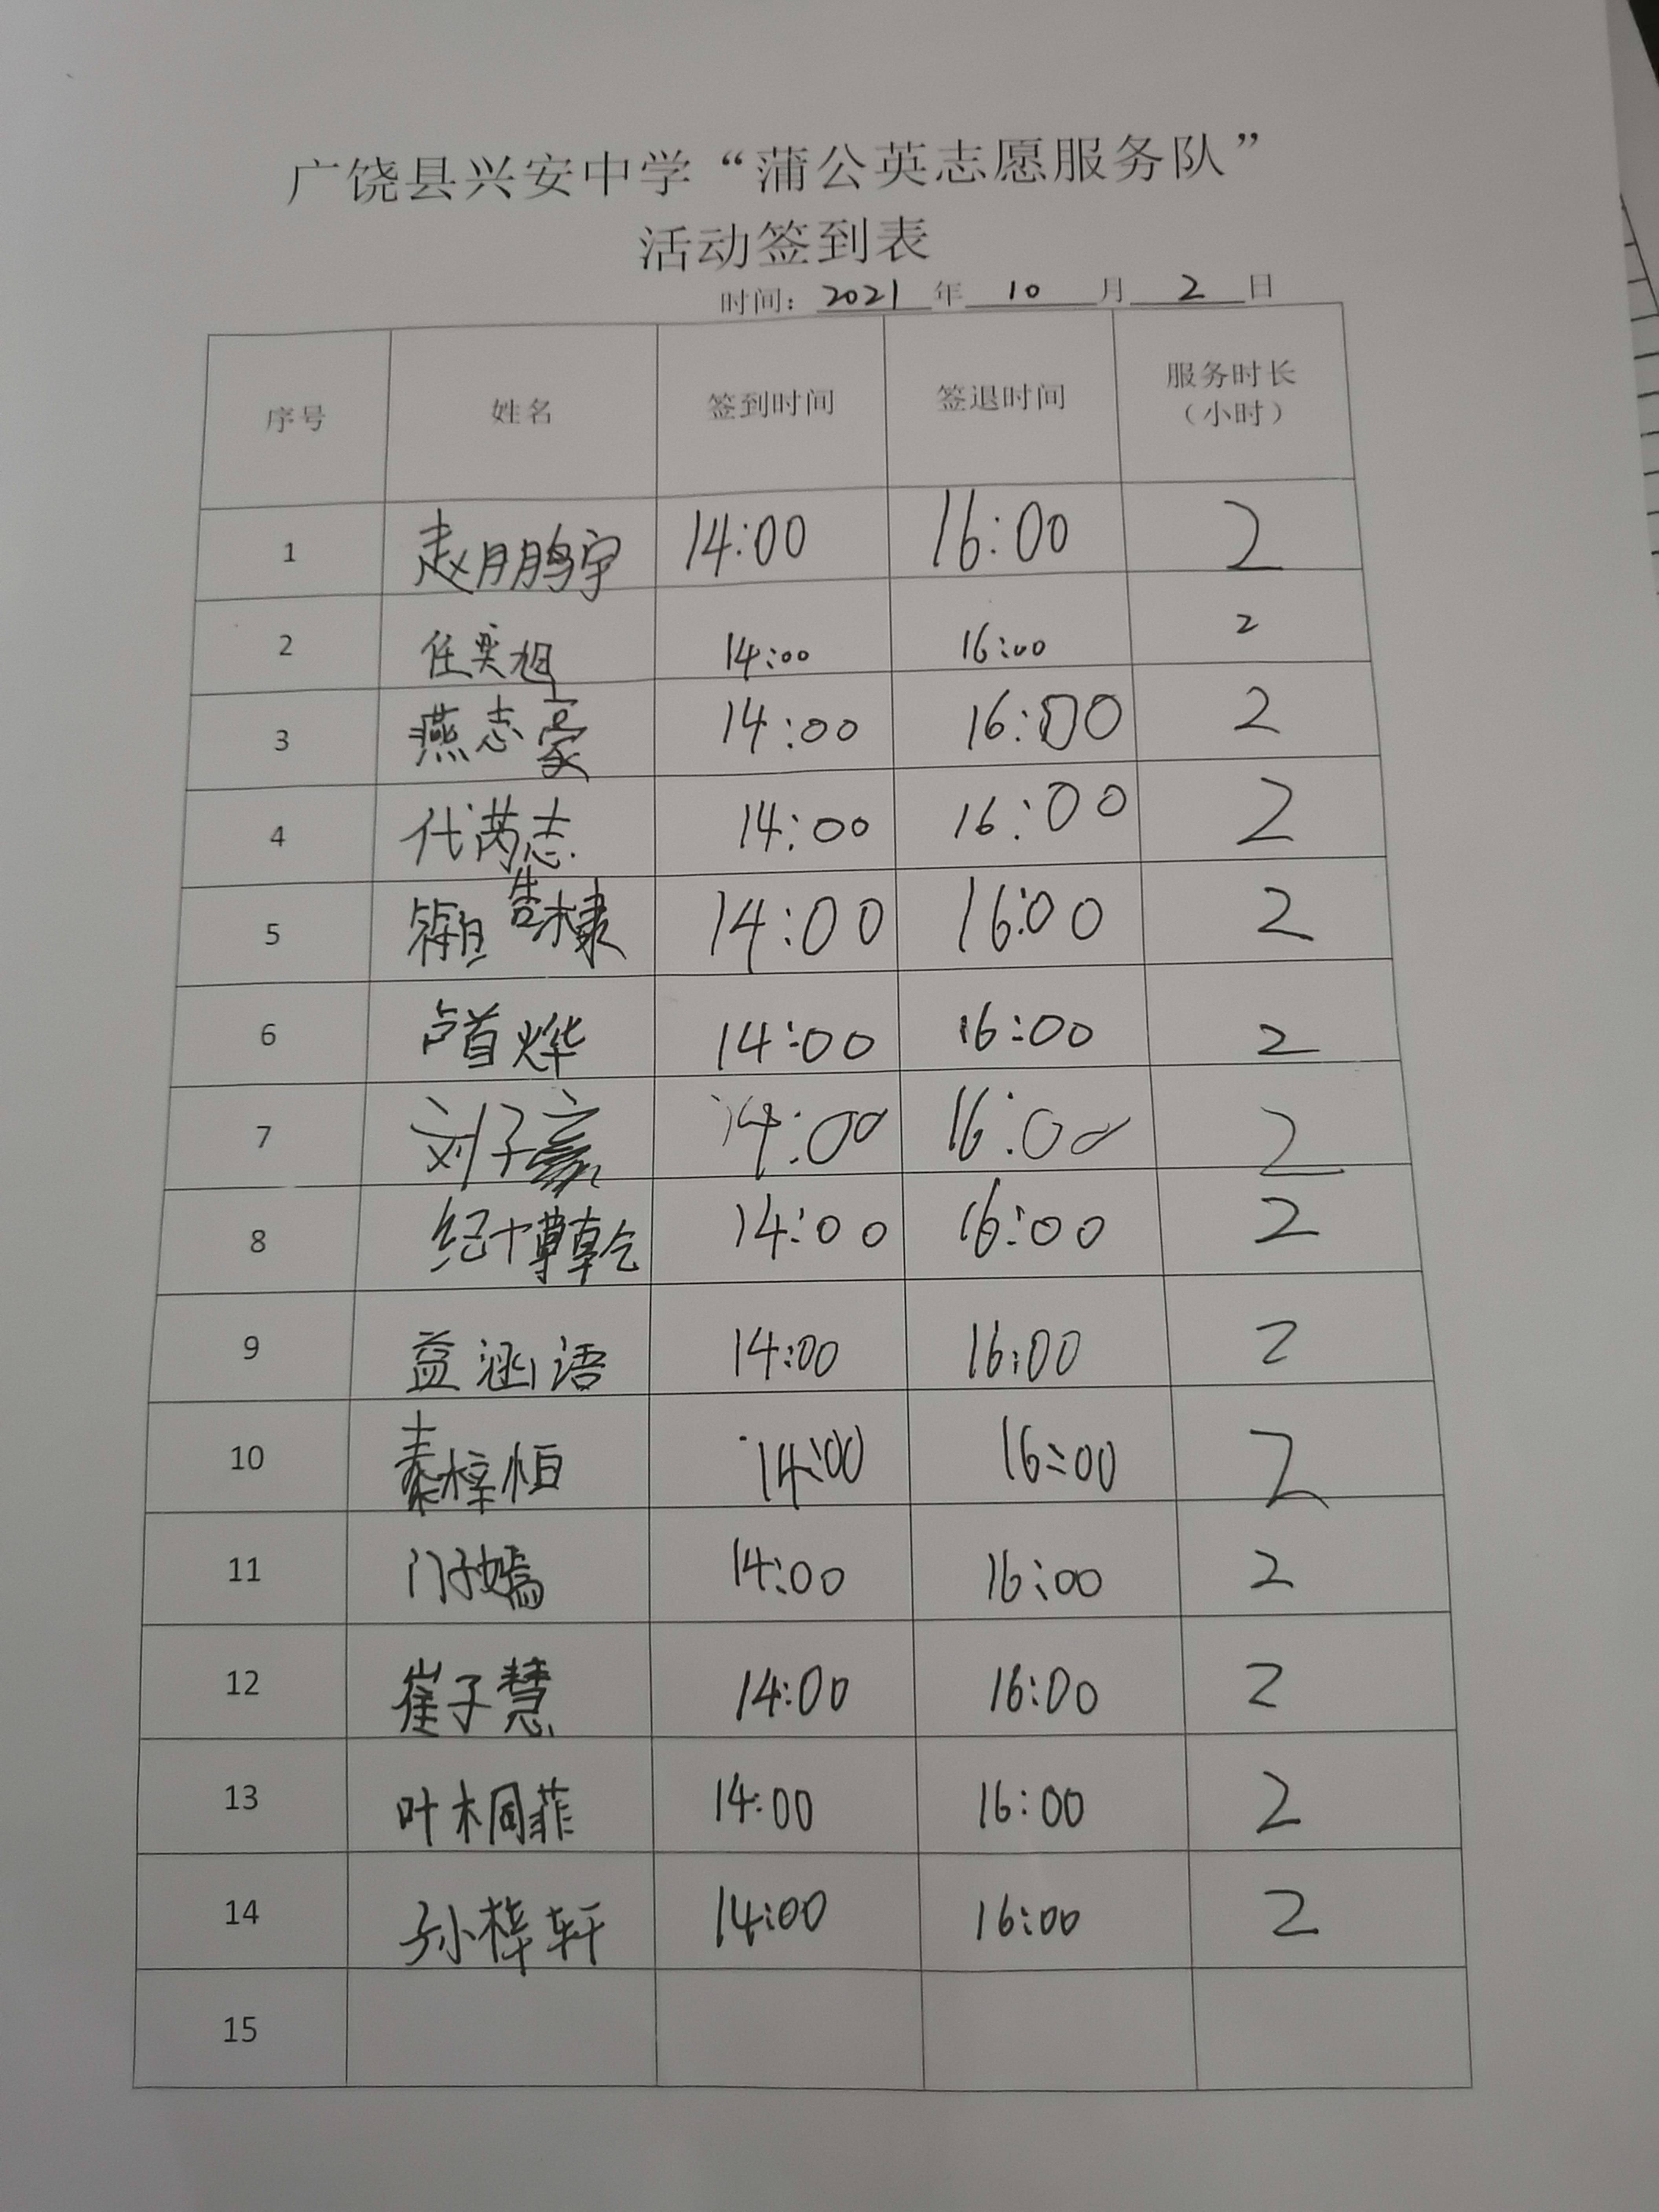 广饶县兴安中学“蒲公英志愿服务队”
活动签到表
时间：2021年10月2日
序号 姓名 签到时间 签退时间 服务时长（小时）
1 赵鹏宇 14:00 16:00 2
2 任奕旭 14:00 16:00 2
3 燕志豪 14:00 16:00 2
4 代芮志 14:00 16:00 2
5 14:00 16:00 2
6 卢首烨 14:00 16:00 2
7 刘子豪 14:00 16:00 2
8 纪博乾 14:00 16:00 2
9 益涵语 14:00 16:00 2
10 秦梓恒 14:00 16:00 2
11 门子嫣 14:00 16:00 2
12 崔子慧 14:00 16:00 2
13 叶桐菲 14:00 16:00 2
14 孙梓轩 14:00 16:00 2
15